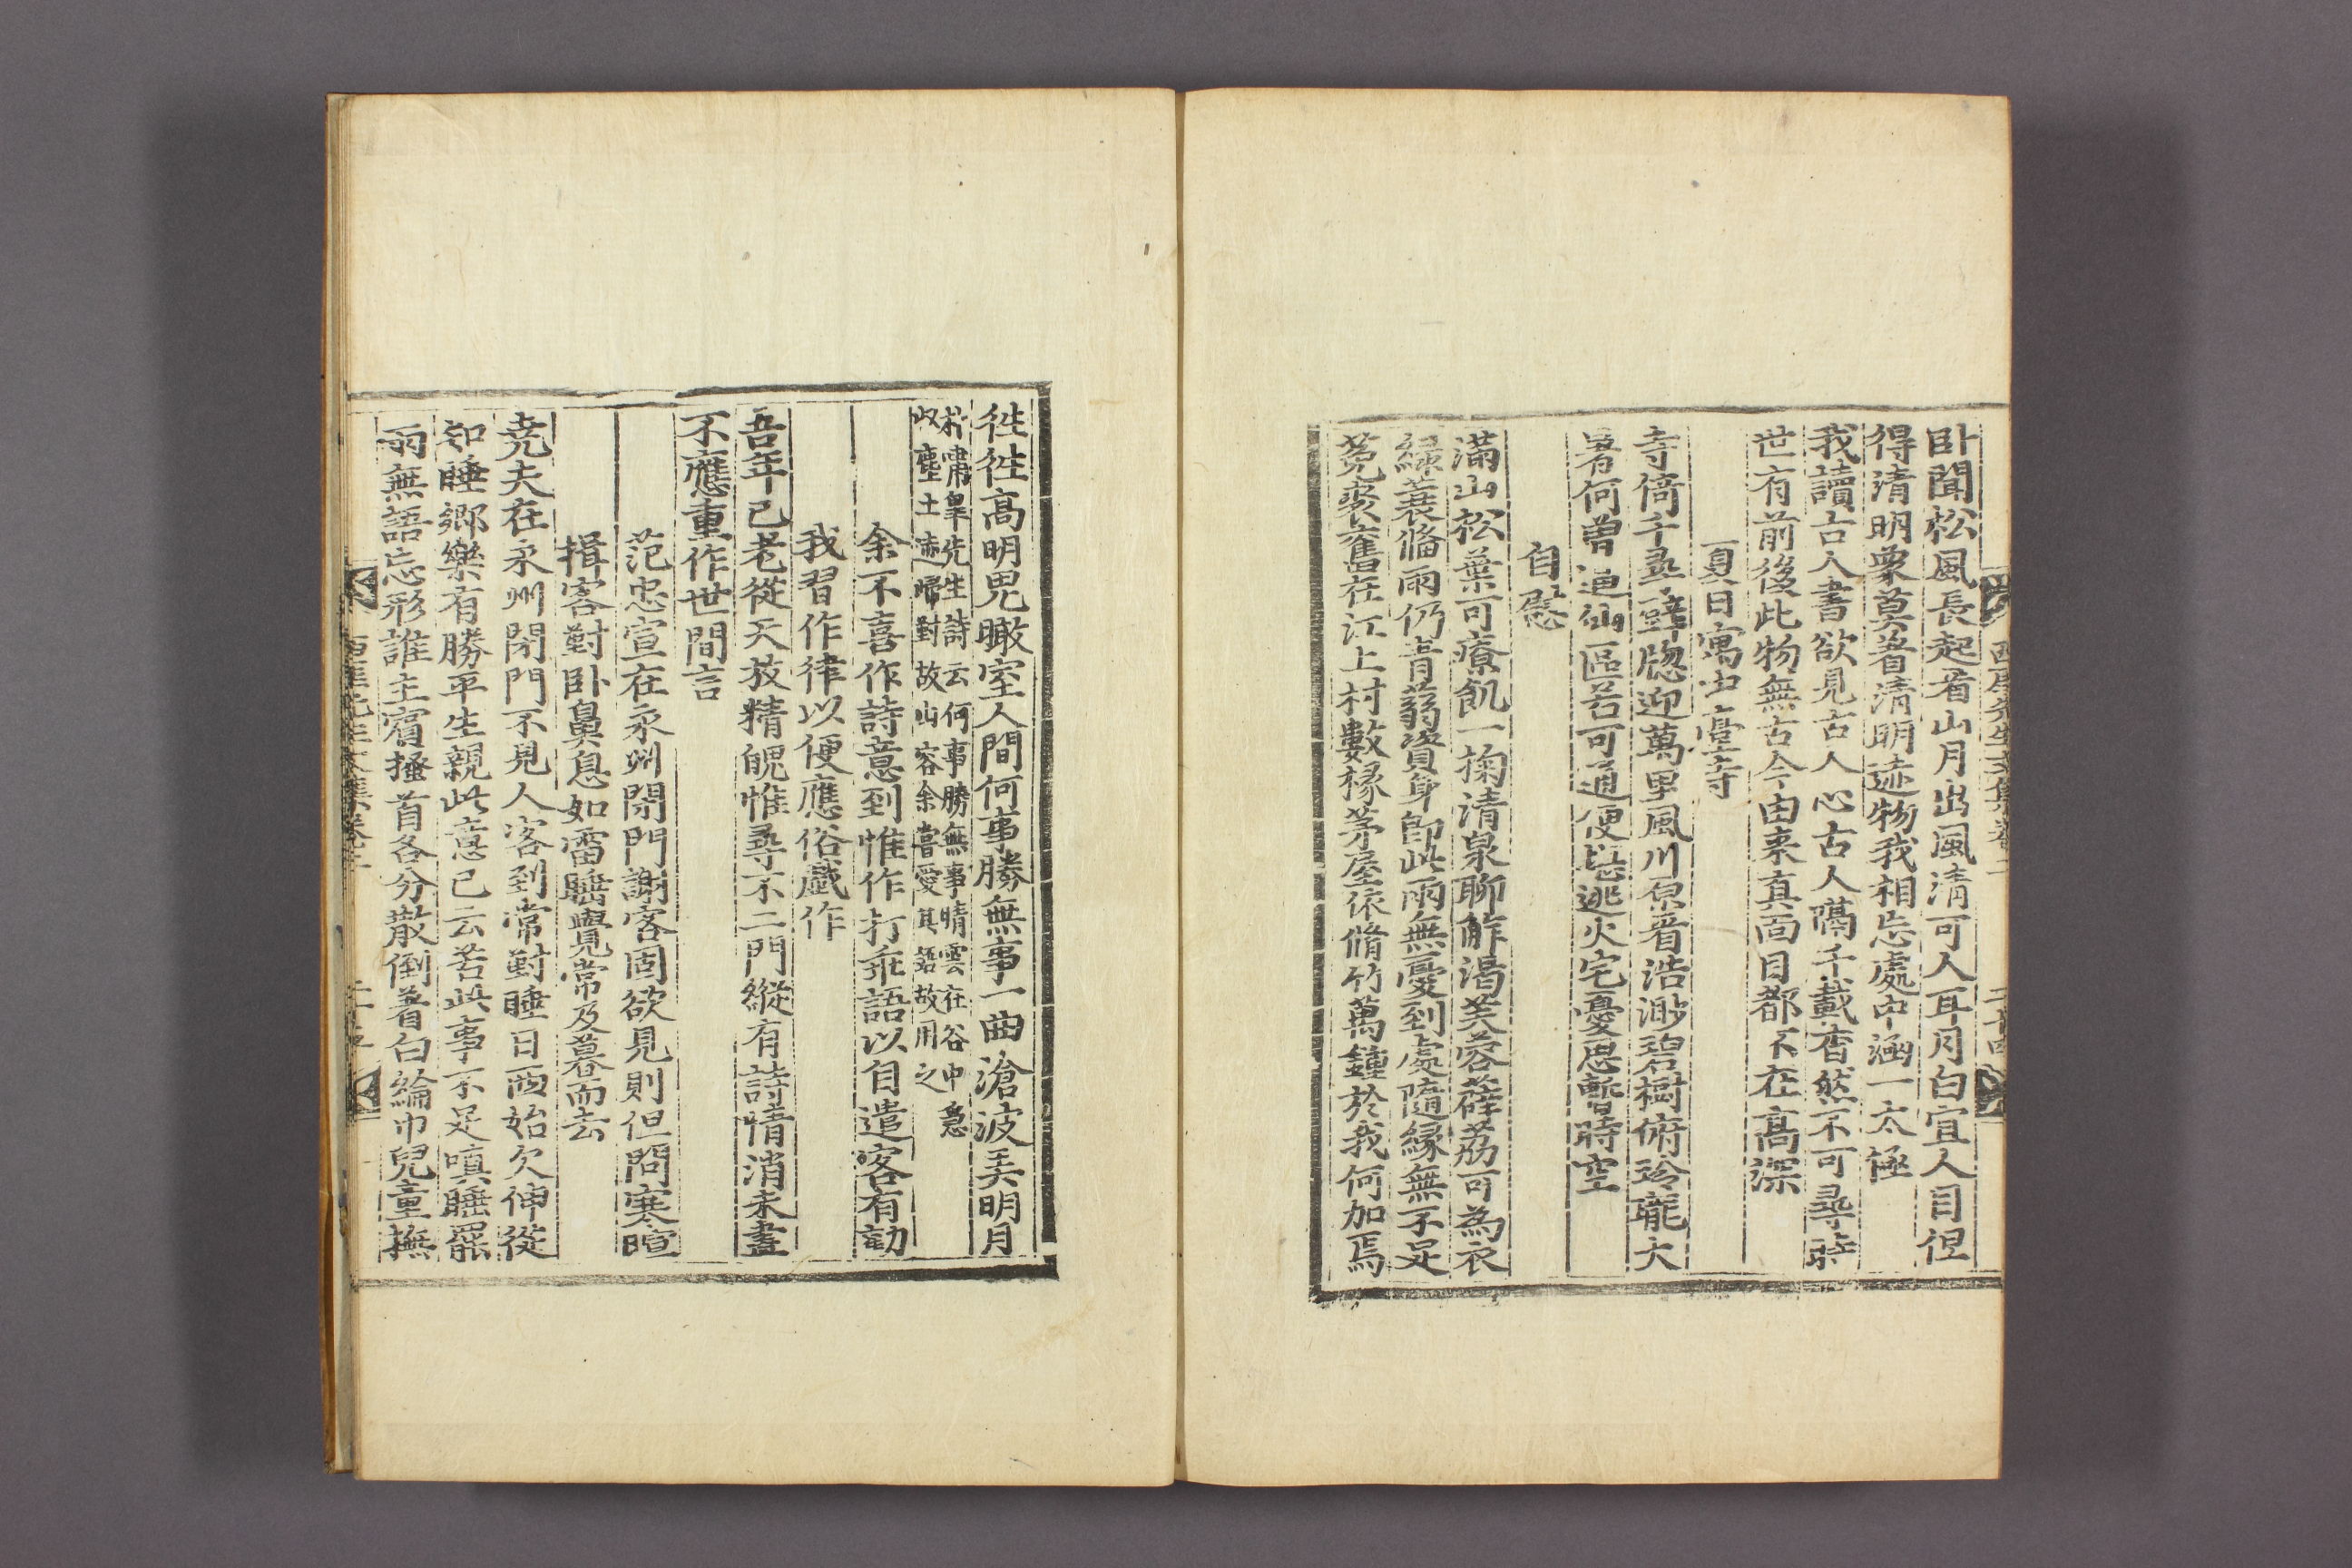 西厓先生文集卷二 二十四
卧聞松風長起看山月出風淸可人耳月白宜人目但
得淸明衆莫着淸明迹物我相忘處中涵一太極
我讀古人書欲見古人心古人隔千載杳然不可尋時
世有前後此物無古今由来真面目都不在高深
夏日寓中臺寺
寺倚千尋壁牎迎萬里風川原看浩渺碧樹俯玲瓏大
暑何曽迫仙區若可通便堪逃火宅憂思暫時空
自慰
滿山松葉可療飢一掬清泉聊觧渴芙蓉薜荔可為衣
綠蓑備雨仍青蒻資身卽此兩無憂到處隨緣無不足
菟裘舊在江上村數椽茅屋依脩竹萬鍾於我何加焉
徃徃高明鬼瞰室人間何事勝無事一曲滄波弄明月
林嘯皐先生詩云何事勝無事晴雲在谷中急
収塵土迹歸對故山容余嘗愛其語故用之
余不喜作詩意到惟作打乖語以自遣客有勸
我習作律以便應俗戲作
吾年已老從天放精魄惟尋不二門縱有詩情消未盡
不應重作世間言
范忠宣在永州閉門謝客固欲見則但問寒暄
揖客對卧鼻息如雷睡覺常及暮而去
尭夫在永州閉門不見人客到常對睡日西始欠伸從
知睡鄉樂有勝平生親此意已云苦此事不足嗔睡罷
兩無語忘形誰主賓搔首各分散倒着白綸巾兒童撫